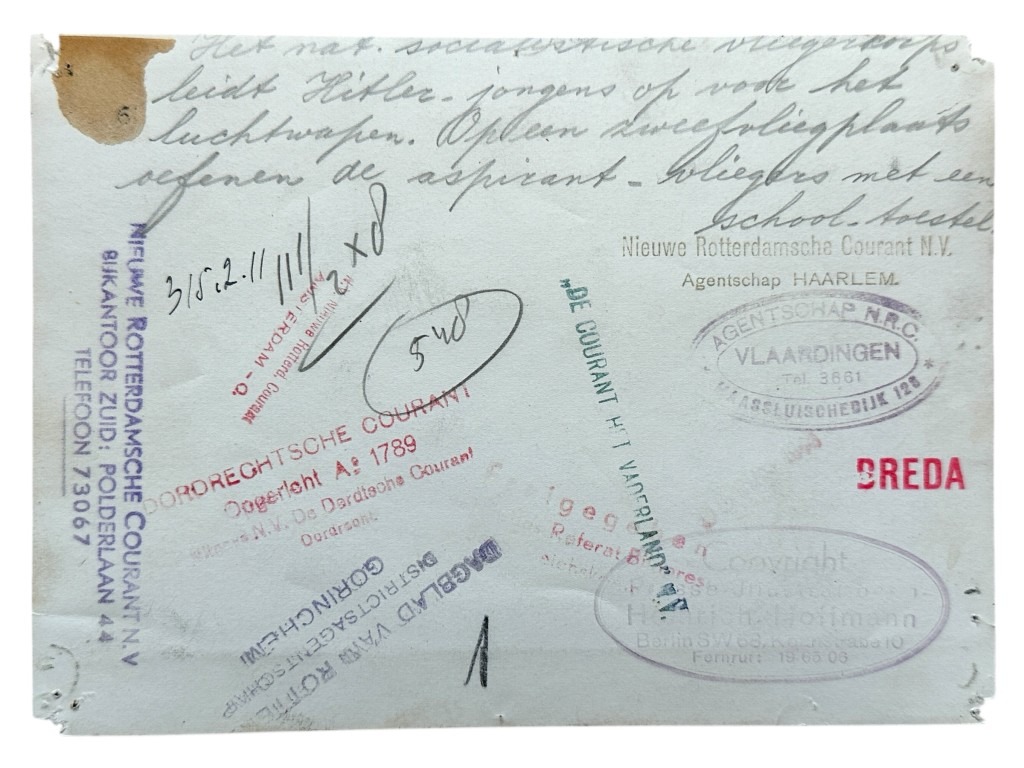 Het nat. socialistische vliegerkorps
leidt Hitler-jongens op voor het
luchtwapen. Op een zweefvliegplaats
oefenen de aspirant-vliegers met een
school-toestel.
6
315.2.11
1/2 x 8
548
NIEUWE ROTTERDAMSCHE COURANT N.V
BIJKANTOOR ZUID: POLDERLAAN 44
TELEFOON 73067
Nieuwe Rotterd. Courant
AMSTERDAM - C.
Nieuwe Rotterdamsche Courant N.V.
Agentschap HAARLEM.
AGENTSCHAP N.R.C.
VLAARDINGEN
Tel. 3661
MAASSLUISCHEDIJK 126
„DE COURANT HET VADERLAND" N.V.
DORDRECHTSCHE COURANT
Opgericht A° 1789
N.V. De Dordtsche Courant
Dordrecht
BREDA
Referat Bildpresse
DAGBLAD VAN ROTTE
DISTRICTSAGENTSCHAP
GORINCHEM
1
Copyright
Presse-Illustrationen
Heinrich Hoffmann
Berlin SW 68, Kochstrasse 10
Fernruf: 19 65 06